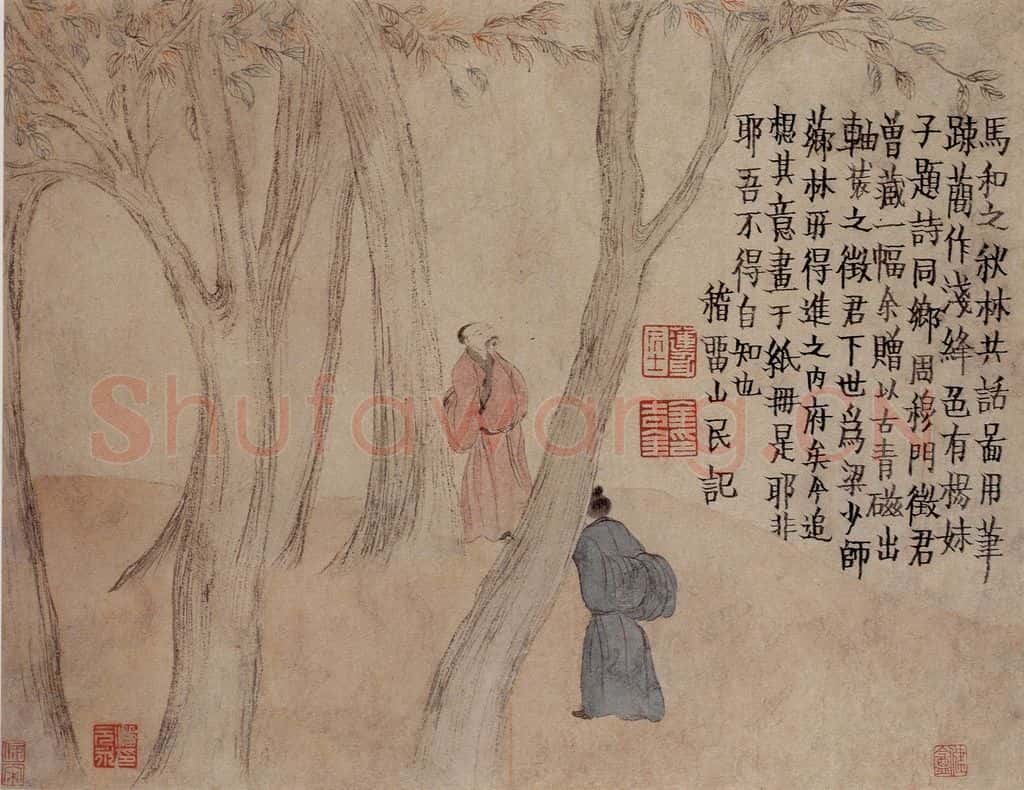 馬和之秋林共話啚用筆
踈蕳作淺絳色有楊妹
子題詩同鄉周穆門徵君
曾藏一幅余贈以古青磁出
軸裝之徵君下世爲梁少師
薌林所得進之内府矣今追
想其意畫于紙冊是耶非
耶吾不得自知也
稽畱山民記
金吉金印
Shufawang.cn